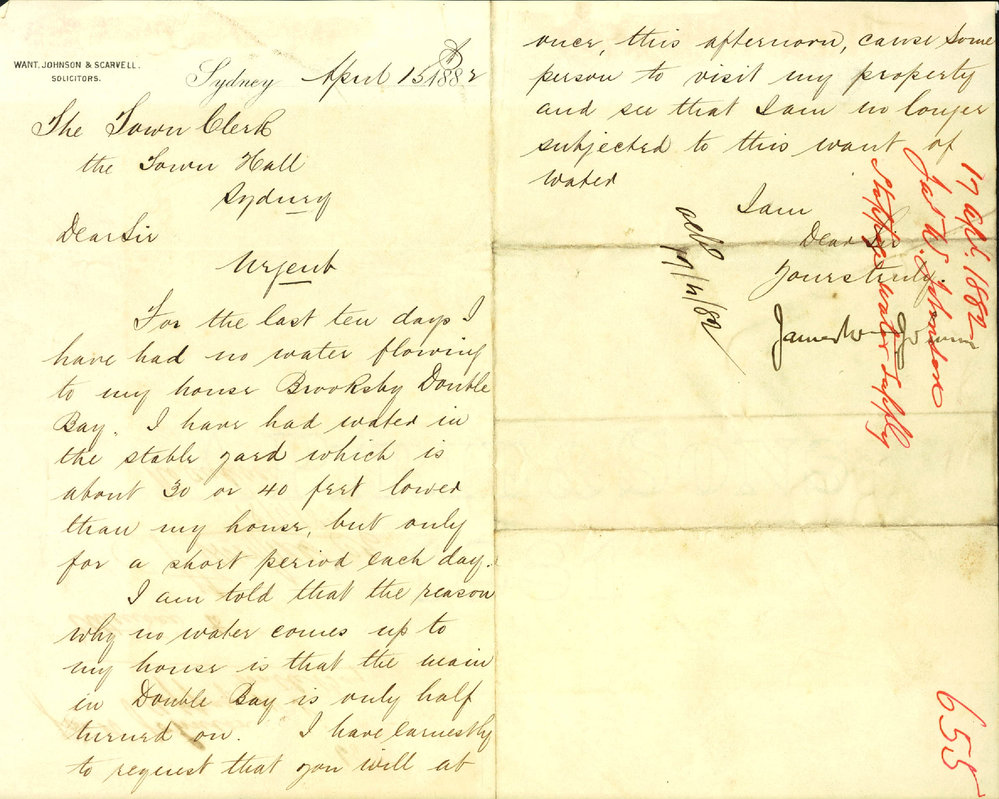 WANT, JOHNSON & SCARVELL.
SOLICITORS.
Sydney April 15 1882
The Town Clerk
the Town Hall
Sydney
Dear Sir
Urgent
For the last ten days I
have had no water flowing
to my house Brooksby Double
Bay. I have had water in
the stable yard which is
about 30 or 40 feet lower
than my house, but only
for a short period each day.
I am told that the reason
why no water comes up to
my house is that the main
in Double Bay is only half
turned on. I have earnestly
to request that you will at
once, this afternoon, cause some
person to visit my property
and see that I am no longer
subjected to this want of
water
I am
Dear Sir
Yours truly.
James W Johnson
17/4/82
17 Apl. 1882
Jas W. Johnson
Stoppage water supply
655